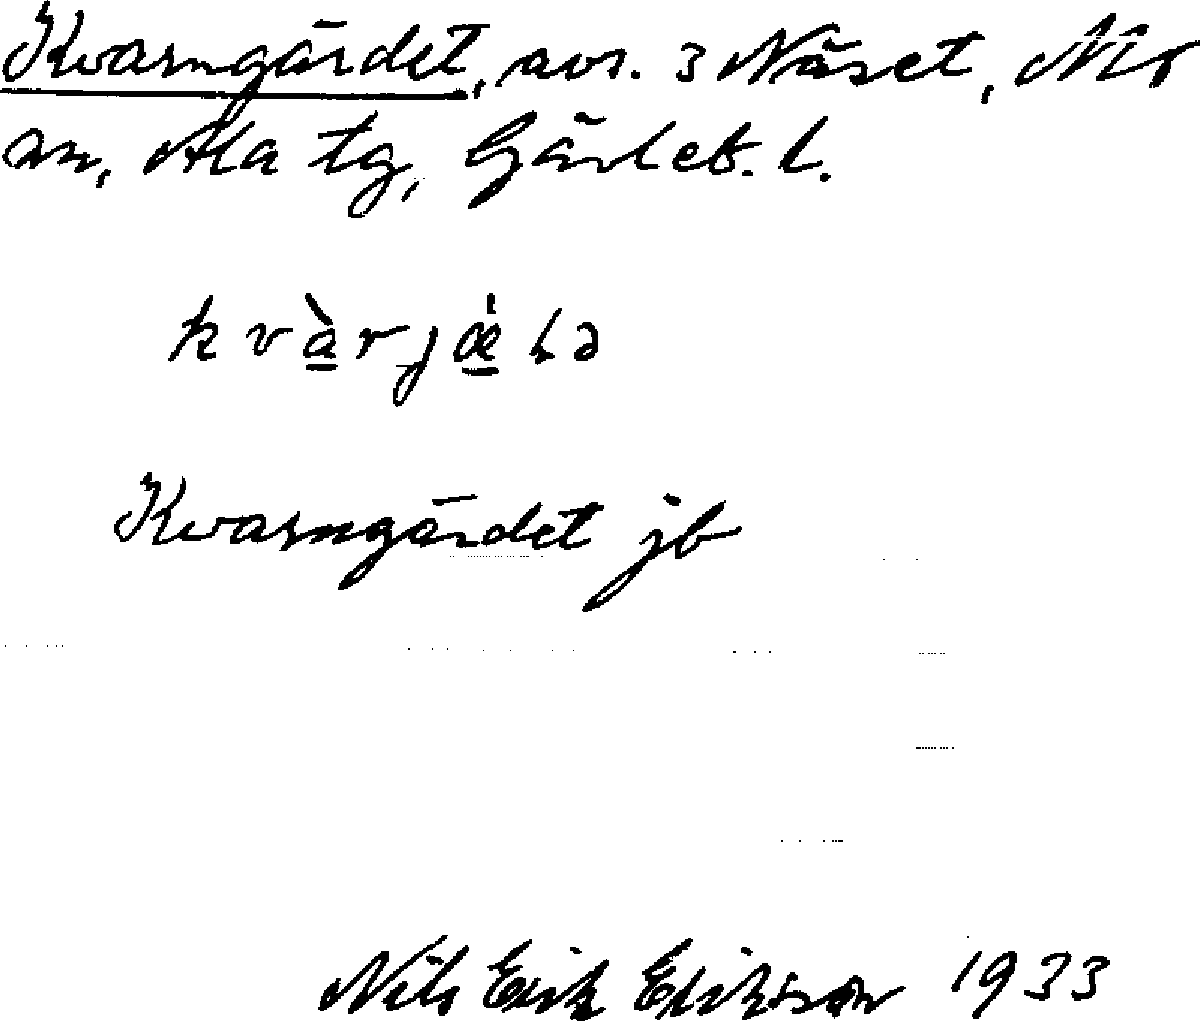 Kvarngärdet, avs. 3 Näset, Mo
sn, Ala tg, Gävleb. l.
kvàrjǽɫə
Kvarngärdet jb
Nils Erik Eriksson 1933